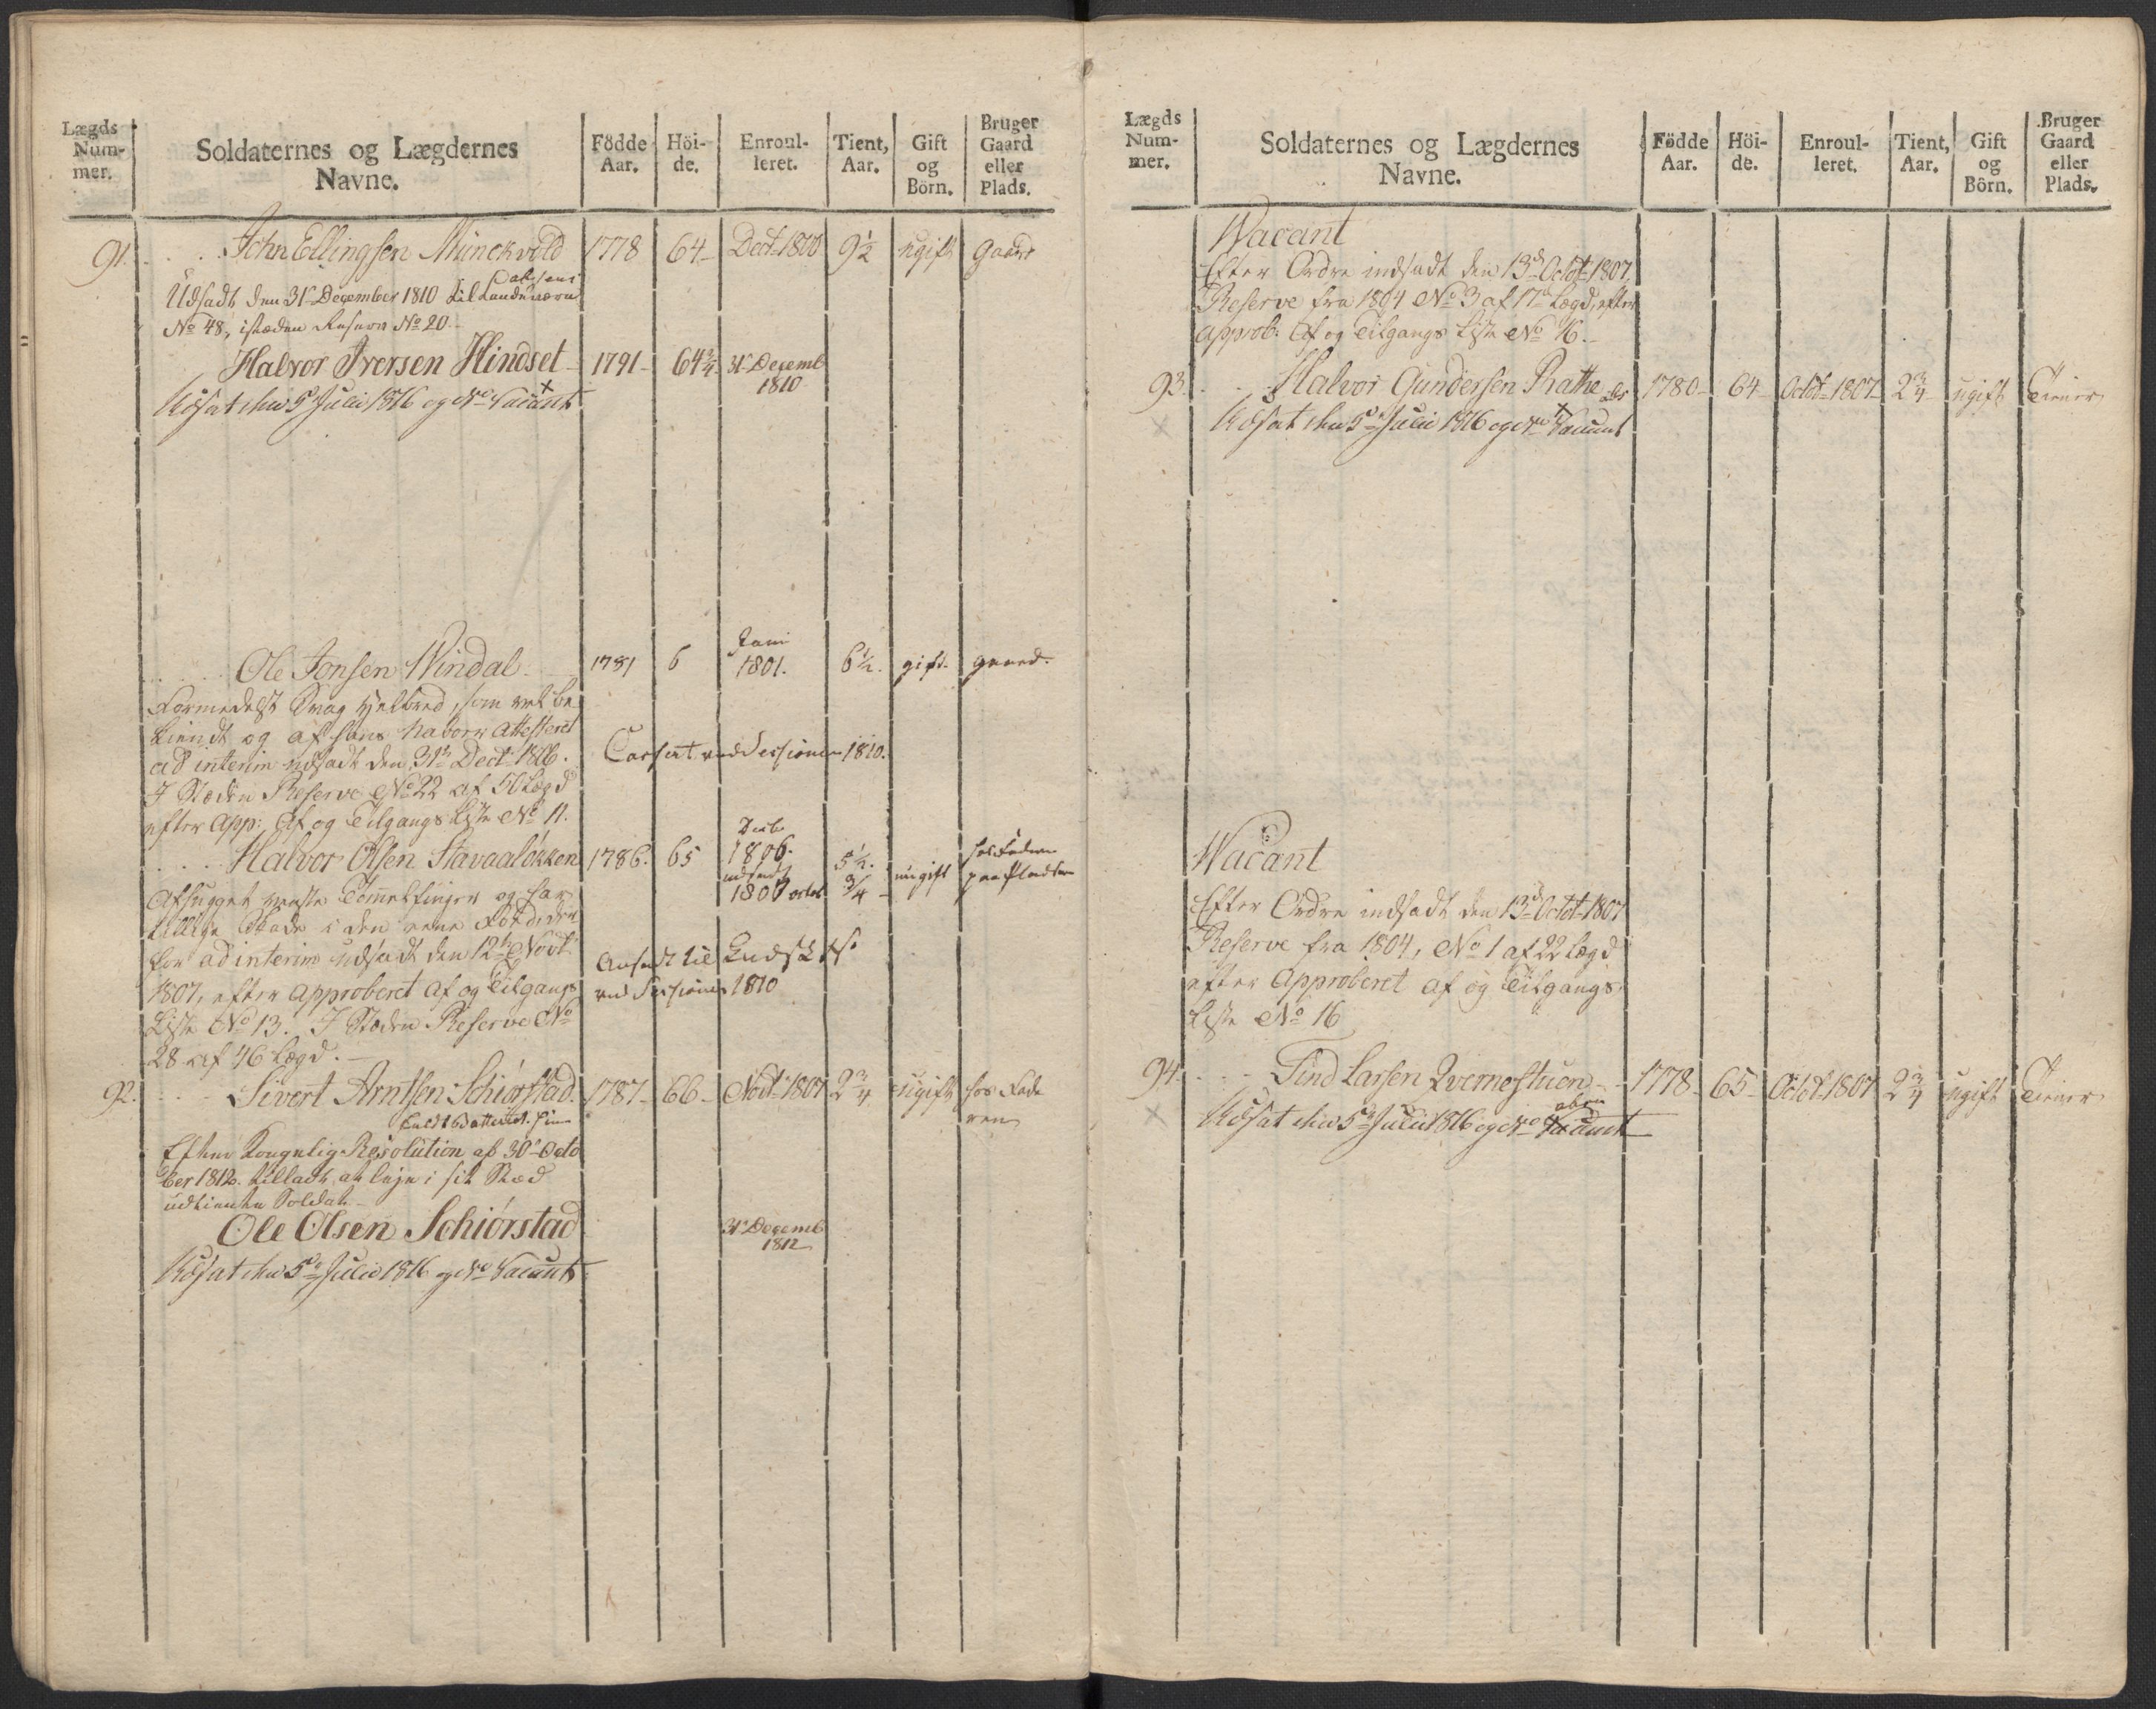 Lægds Num- mer.
Soldaternes og Lægdernes Navne.
Födde Aar.
Höi- de.
Enroul- leret.
Tient, Aar.
Gift og Börn.
Bruger Gaard eller Plads.
91. John Ellingsen Munckvold 1778 64 Decb. 1800 9½ ugift Gaard
Udsadt den 31te December 1810 til Landeværn
No 48, istæden Reserve No 20.
Halvor Iversen Hindset 1791 64¾ 31te Decemb 1810
Udsat den 5te Julii 1816 og No Vacant
Ole Jonsen Windal 1781 6 Juni 1801. 6½. gift. gaard.
Formedelst Svag Helbred, som vel be
kiendt og af hans Naboer Attesteret
ad interim udsadt den 31te Decb. 1806.
I Stæden Reserve No 22 af 50 Lægd
efter App: Af og Tilgangs Liste No 11.
Casseret ved Sessionen 1810.
Halvor Olsen Stavaaløkken 1786. 65 Decb 1806. udsadt 1807 octob 5½. ¾ ugift hos Faderen paa Pladsen
Afhugget venste Tommelfinger og har
tillige Skade i den ene Fod, der
for ad interim udsadt den 12te Novb.
1807, efter Approberet Af og Tilgangs
Liste No 13. I Stæden Reserve No
28 af 46 Lægd.
Ansadt til
ved Sessionen 1810
92. Sivert Arntsen Schiørstad 1787 66 Novb. 1807 2¾ ugift hos Fade ren
Efter Kongelig Resolution af 30te Octo
ber 1812. tilladt at leje i sit Stæd
udtiente Soldat
Ole Olsen Schiørstad 31te Decemb 1812
Udsat den 5te Julii 1816 og No Vacant
Lægds Num- mer.
Soldaternes og Lægdernes Navne.
Födde Aar.
Höi- de.
Enroul- leret.
Tient, Aar.
Gift og Börn.
Bruger Gaard eller Plads.
Wacant
Efter Ordre indsadt den 13de Octob. 1807,
Reserve fra 1804 No 3 af 17de Lægd, efter
Approb. Af og Tilgangs Liste No 16.
93. Halvor Gundersen Rathe 1780 64 Octob. 1807 2¾ ugift Tiener
Udsat den 5te Julii 1816 og No Vacant
Wacant
Efter Ordre indsadt den 13de Octob. 1807
Reserve fra 1804, No 1 af 22 Lægd
efter Approberet Af og Tilgangs
Liste No 16
94. Find Larsen Qvernestuen 1778 65 Octob. 1807 2¾ ugift Tiener
Udsat den 5te Julii 1816 og No Vacant